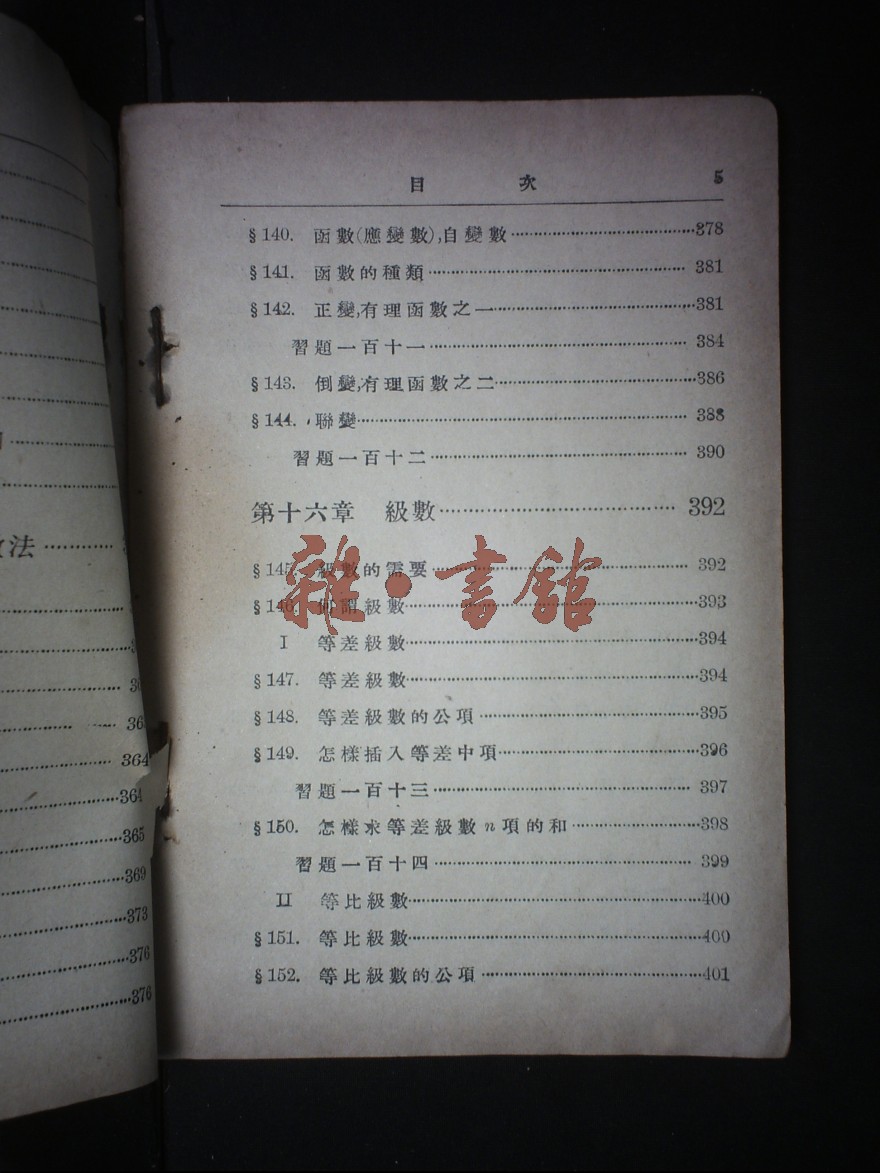 法············
363
364
364
365
369
373
376
376
目 次 5
§140. 函數(應變數),自變數····································378
§141. 函數的種類···················································· 381
§142. 正變,有理函數之一········································381
習題一百十一···················································· 384
§143. 倒變,有理函數之二········································386
§144. 聯變·································································· 388
習題一百十二···················································· 390
第十六章 級數···································· 392
§145. 級數的需要···················································· 392
§146. 何謂級數··························································393
I 等差級數··························································394
§147. 等差級數··························································394
§148. 等差級數的公項············································395
§149. 怎樣插入等差中項········································396
習題一百十三···················································· 397
§150. 怎樣求等差級數n項的和··························398
習題一百十四···················································· 399
II 等比級數··························································400
§151. 等比級數··························································400
§152. 等比級數的公項············································401
雜·書館